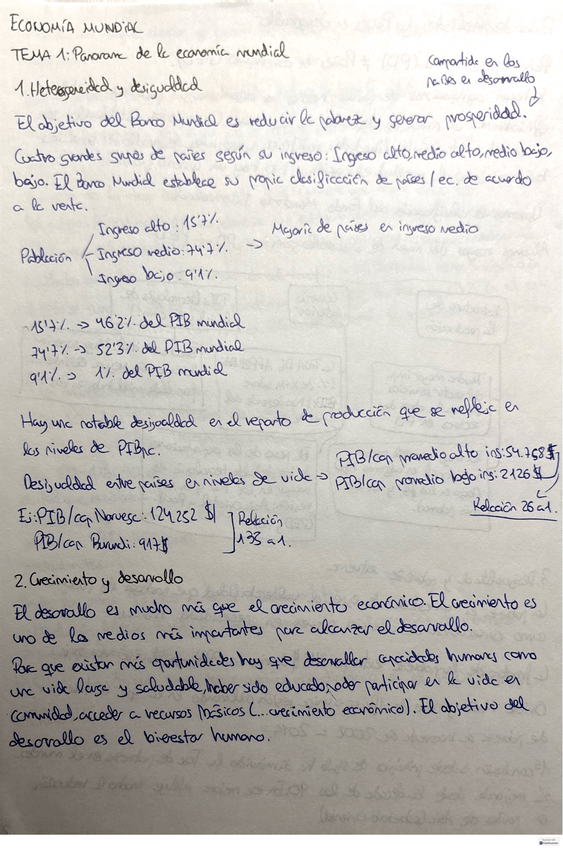 ECONOMÍA MUNDIAL
TEMA 1: Panorama de la economía mundial
1. Heterogeneidad y desigualdad
Compartida en los
países en desarrollo
El objetivo del Banco Mundial es reducir la pobreza y generar prosperidad.
Cuatro grandes grupos de países según su ingreso: Ingreso alto, medio alto, medio bajo,
bajo. El Banco Mundial establece su propia clasificación de países/ec. de acuerdo
a la renta.
Población
Ingreso alto: 15'7%
Ingreso medio: 74'7% → Mayoría de países en ingreso medio
Ingreso bajo: 9'1%
15'7% → 46'2% del PIB mundial
74'7% → 52'3% del PIB mundial
9'1% → 1% del PIB mundial
Hay una notable desigualdad en el reparto de producción que se refleja en
los niveles de PIBpc.
Desigualdad entre países en niveles de vida → PIB/cap promedio alto ing: 54.768$
PIB/cap promedio bajo ing: 2126 $
Relación 26 a 1.
Ej: PIB/cap Noruega: 124.252 $
PIB/cap Burundi: 917$
Relación
135 a 1.
2. Crecimiento y desarrollo
El desarrollo es mucho más que el crecimiento económico. El crecimiento es
uno de los medios más importantes para alcanzar el desarrollo.
Para que existan más oportunidades hay que desarrollar capacidades humanas como
una vida larga y saludable, haber sido educado, poder participar en la vida en
comunidad, acceder a recursos básicos (... crecimiento económico). El objetivo del
desarrollo es el bienestar humano.